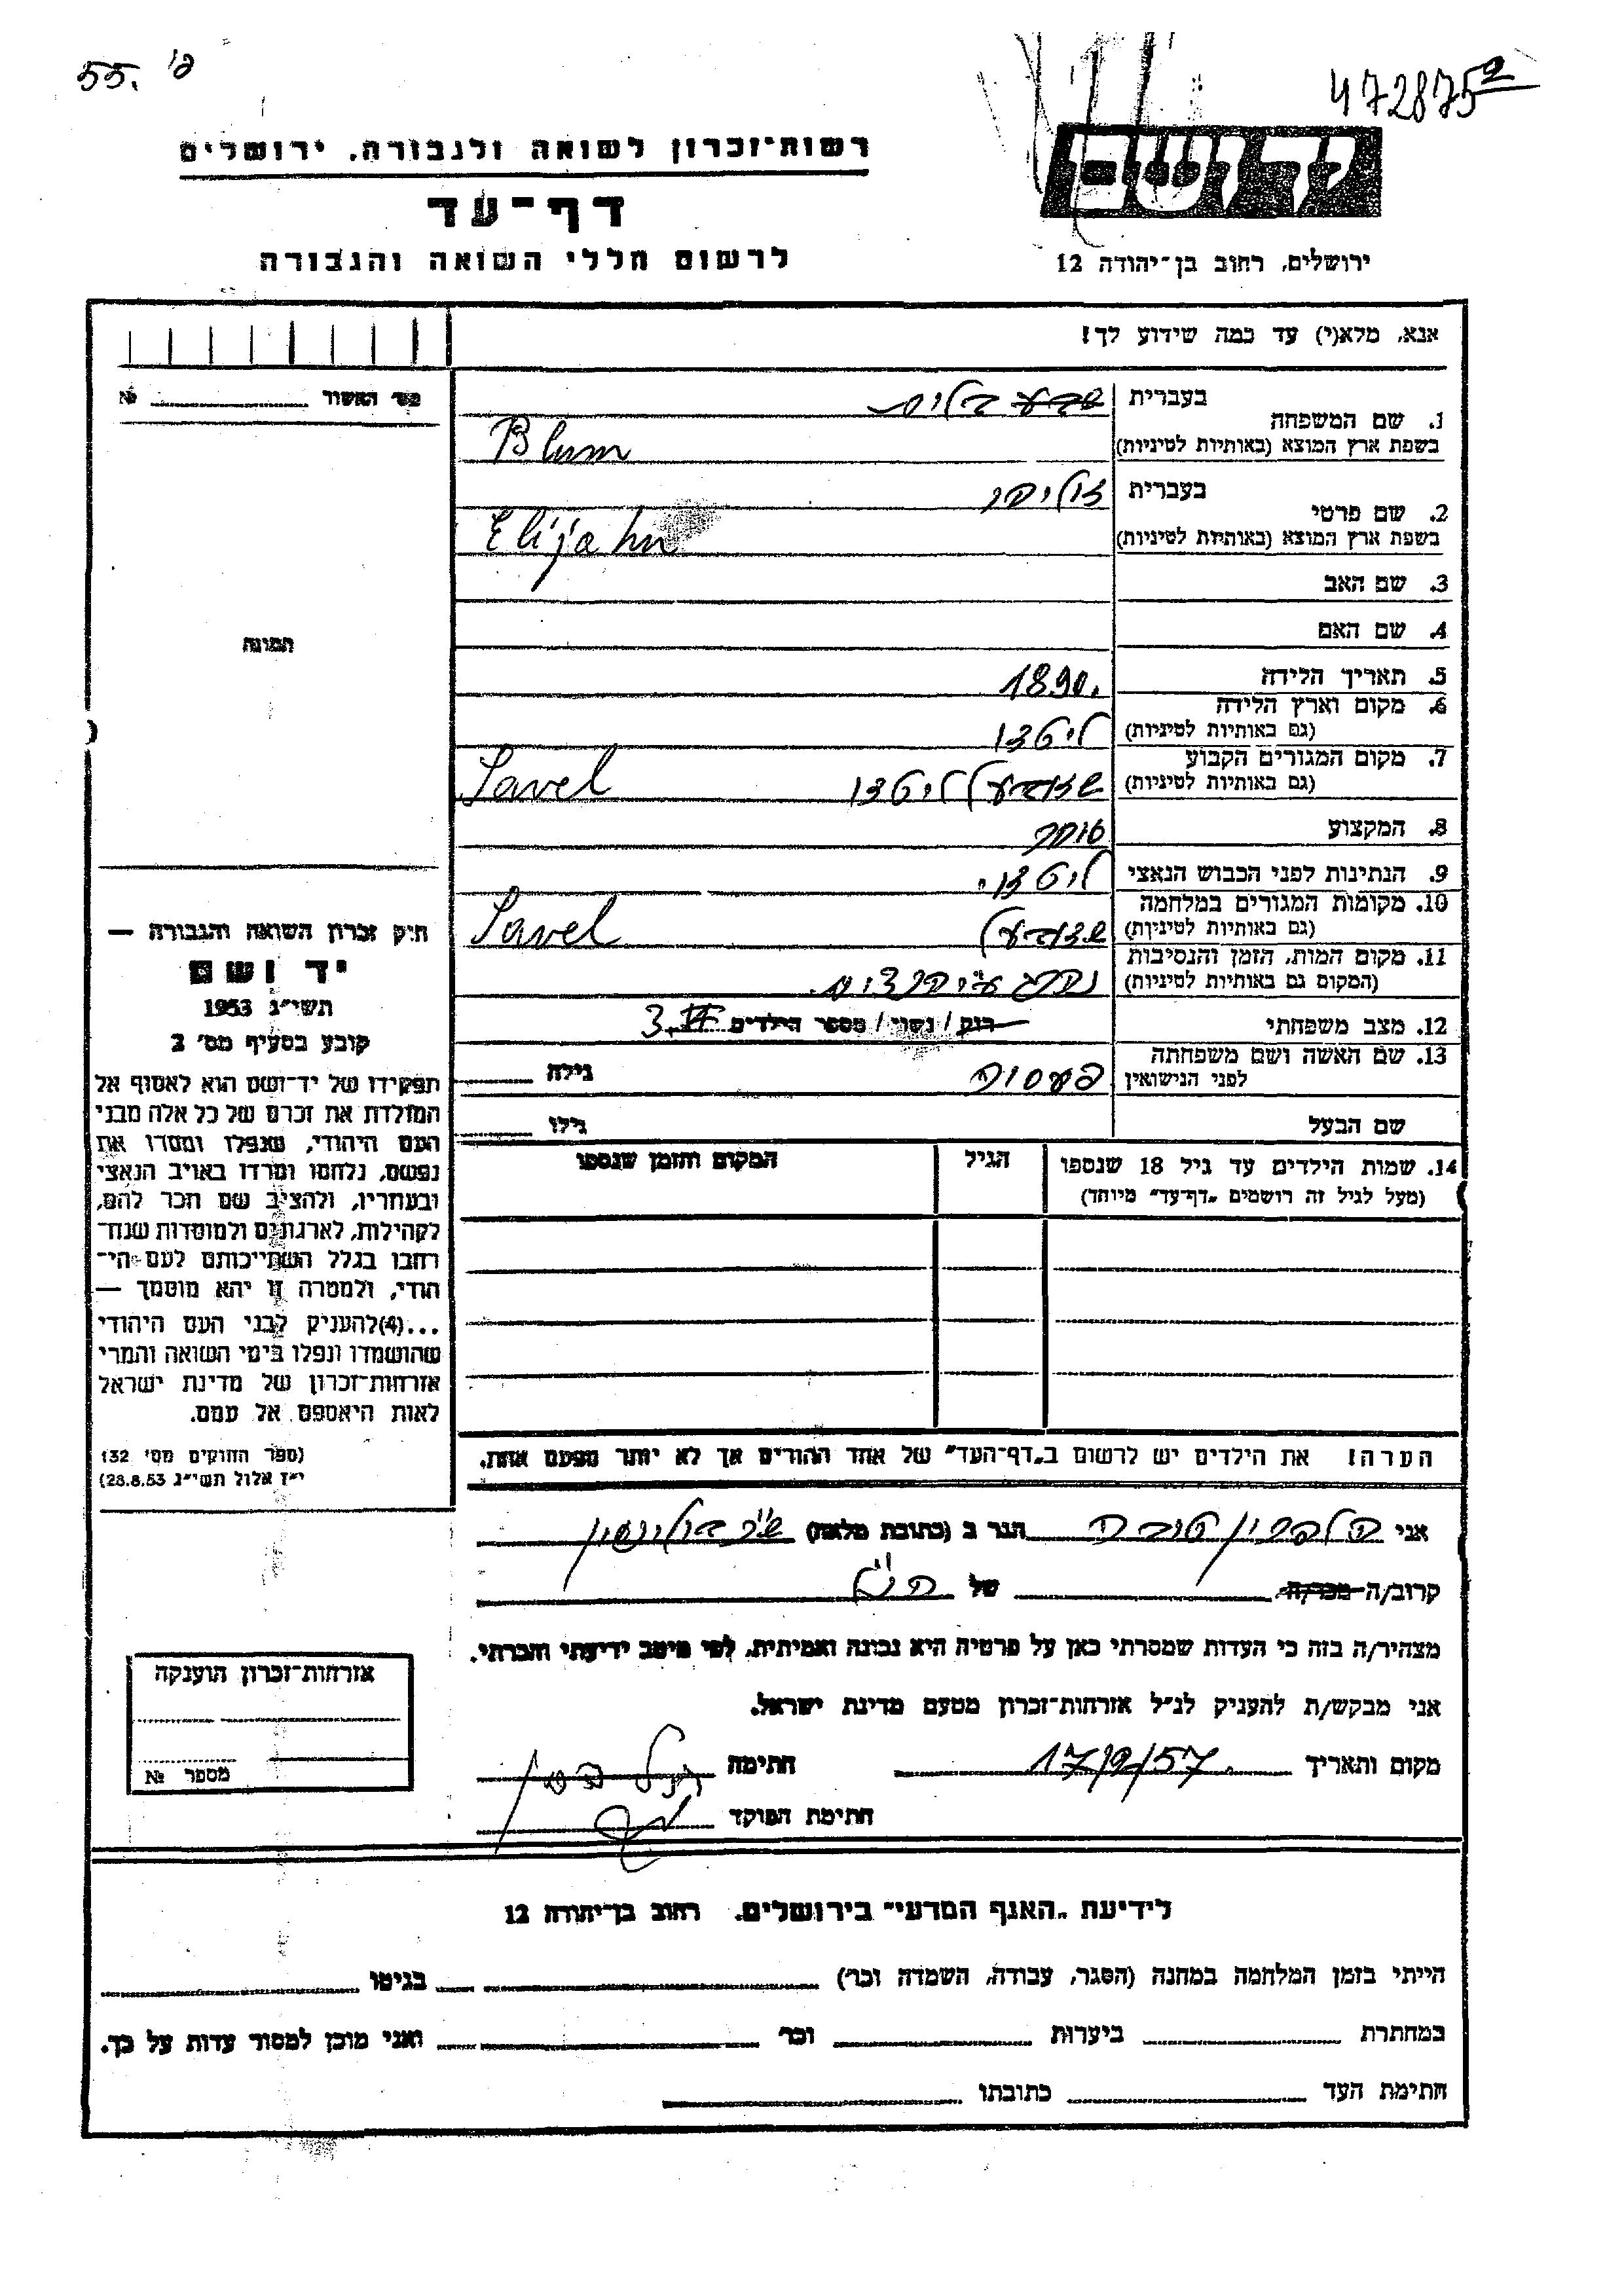 55. פ'
472875
רשות־זכרון לשואה ולגבורה, ירושלים
דף־עד
לרשום חללי השואה והגבורה
ידושם
ירושלים, רחוב בן־יהודה 12
אנא, מלא(י) עד כמה שידוע לך!
מס' האשור № 
1. שם המשפחה
בעברית בלום
בשפת ארץ המוצא (באותיות לטיניות) Blum
2. שם פרטי
בעברית
בשפת ארץ המוצא (באותיות לטיניות) Elijahu
3. שם האב
4. שם האם
תמונה
5. תאריך הלידה 1890.
6. מקום וארץ הלידה
(גם באותיות לטיניות) ליטא
7. מקום המגורים הקבוע
(גם באותיות לטיניות) ליטא Savel
8. המקצוע סוחר
9. הנתינות לפני הכבוש הנאצי ליטא.
10. מקומות המגורים במלחמה
(גם באותיות לטיניות) Savel
11. מקום המות, הזמן והנסיבות
(המקום גם באותיות לטיניות)
12. מצב משפחתי רוק / נשוי / מספר הילדים 3
13. שם האשה ושם משפחתה
לפני הנישואין גילה
שם הבעל גילו
14. שמות הילדים עד גיל 18 שנספו
(מעל לגיל זה רושמים „דף־עד" מיוחד)
הגיל
המקום והזמן שנספו
חיק זכרון השואה והגבורה —
יד ושם
תשי״ג 1953
קובע בסעיף מס' 2
תפקידו של יד־ושם הוא לאסוף אל
המולדת את זכרם של כל אלה מבני
העם היהודי, שנפלו ומסרו את
נפשם, נלחמו ומרדו באויב הנאצי
ובעוזריו, ולהציב שם וזכר להם,
לקהילות, לארגונים ולמוסדות שנח־
רבו בגלל השתייכותם לעם הי־
הודי, ולמטרה זו יהא מוסמך —
...(4)להעניק לבני העם היהודי
שהושמדו ונפלו בימי השואה והמרי
אזרחות־זכרון של מדינת ישראל
לאות היאספם אל עמם.
(ספר החוקים מס' 132
י״ז אלול תשי״ג 28.8.53)
הערה! את הילדים יש לרשום ב„דף־העד" של אחד ההורים אך לא יותר מפעם אחת.
אני טובה הגר ב (כתובת מלאה)
קרוב/ה מכר/ה של הנ״ל
מצהיר/ה בזה כי העדות שמסרתי כאן על פרטיה היא נכונה ואמיתית, לפי מיטב ידיעתי והכרתי.
אני מבקש/ת להעניק לנ״ל אזרחות־זכרון מטעם מדינת ישראל.
מקום ותאריך 17/9/57. חתימה
חתימת הפוקד
אזרחות־זכרון הוענקה
מספר №
לידיעת „האגף המדעי" בירושלים. רחוב בן־יהודה 12
הייתי בזמן המלחמה במחנה (הסגר, עבודה, השמדה וכו') בגיטו
במחתרת ביערות וכו' ואני מוכן למסור עדות על כך.
חתימת העד כתובתו